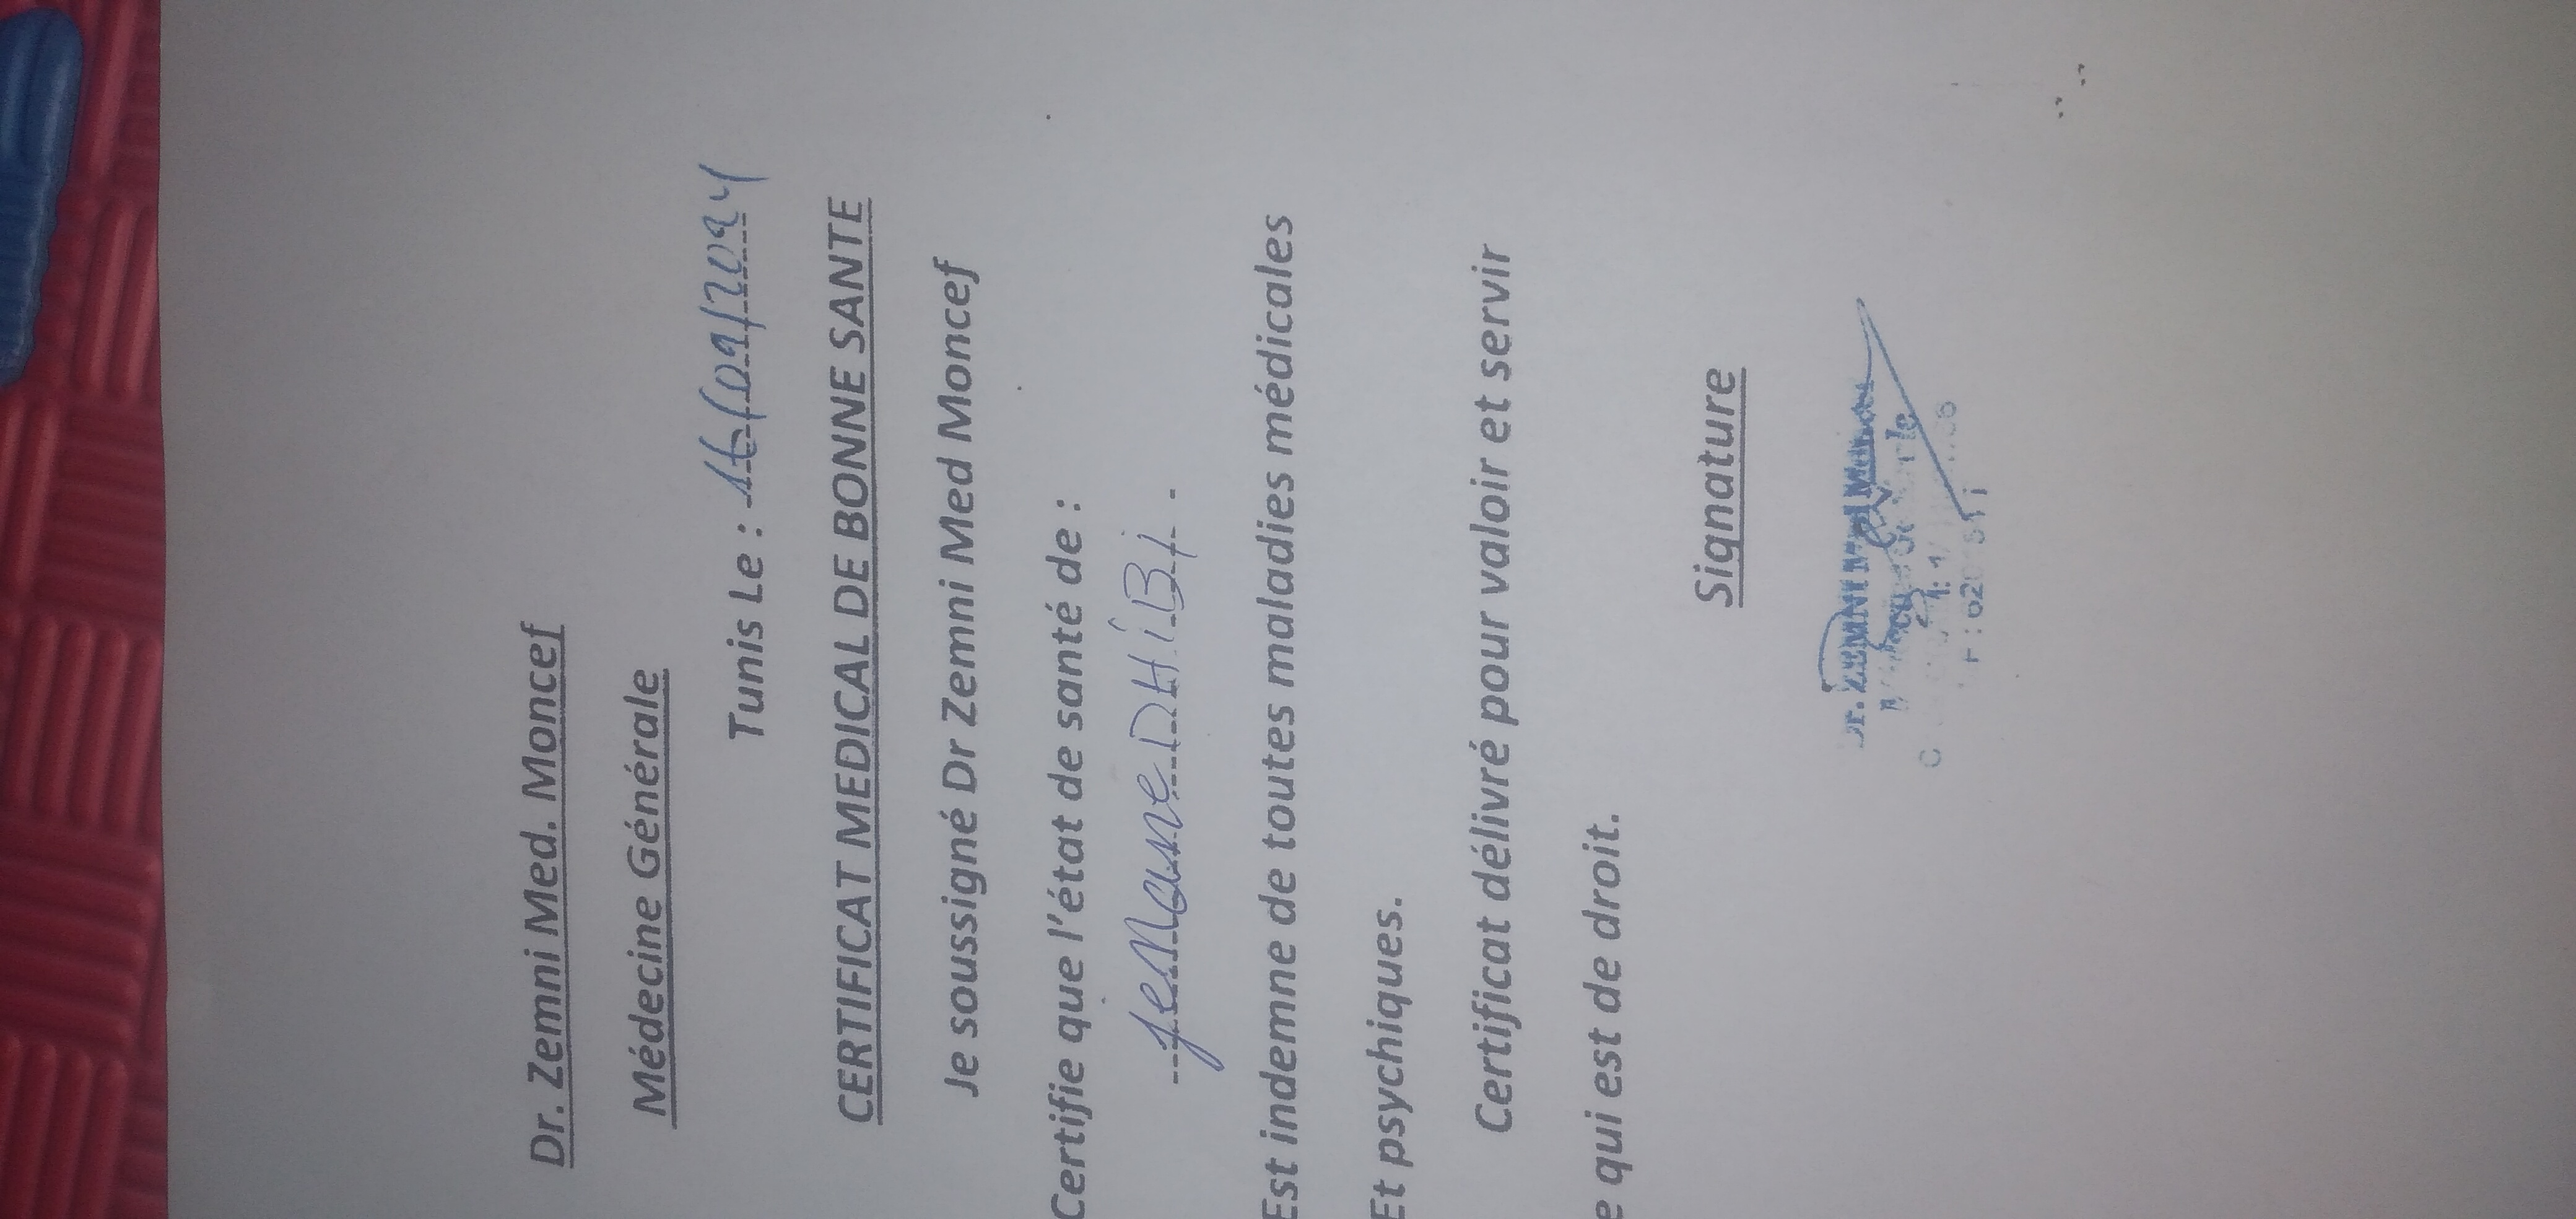 Dr. Zemni Med. Moncef
Médecine Générale
Tunis Le : 16/09/2024
CERTIFICAT MEDICAL DE BONNE SANTE
Je soussigné Dr Zemni Med Moncef
Certifie que l'état de santé de :
Jemane DHiBi
Est indemne de toutes maladies médicales
Et psychiques.
Certificat délivré pour valoir et servir
e qui est de droit.
Signature
Dr. ZEMNI Med Moncef